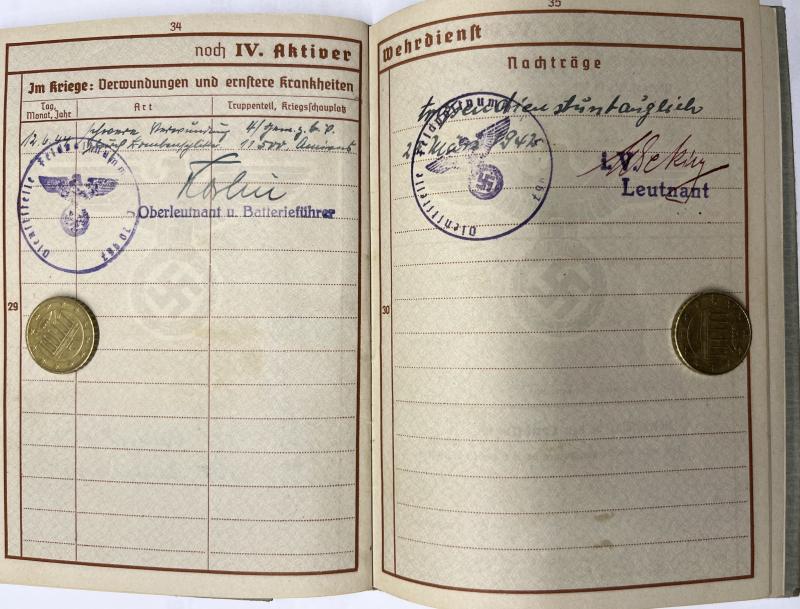 34
noch IV. Aktiver
Im Kriege: Verwundungen und ernstere Krankheiten
Tag, Monat, Jahr
Art
Truppenteil, Kriegsschauplatz
12.6.44 schwere Verwundung
durch Bombensplitter
Dienststelle Feldpostnumm
Oberleutnant u. Batterieführer
29
35
Wehrdienst
Nachträge
tropendienstuntauglich
März 1942
Dienststelle Feldpostnumm
I.V.
Leutnant
30